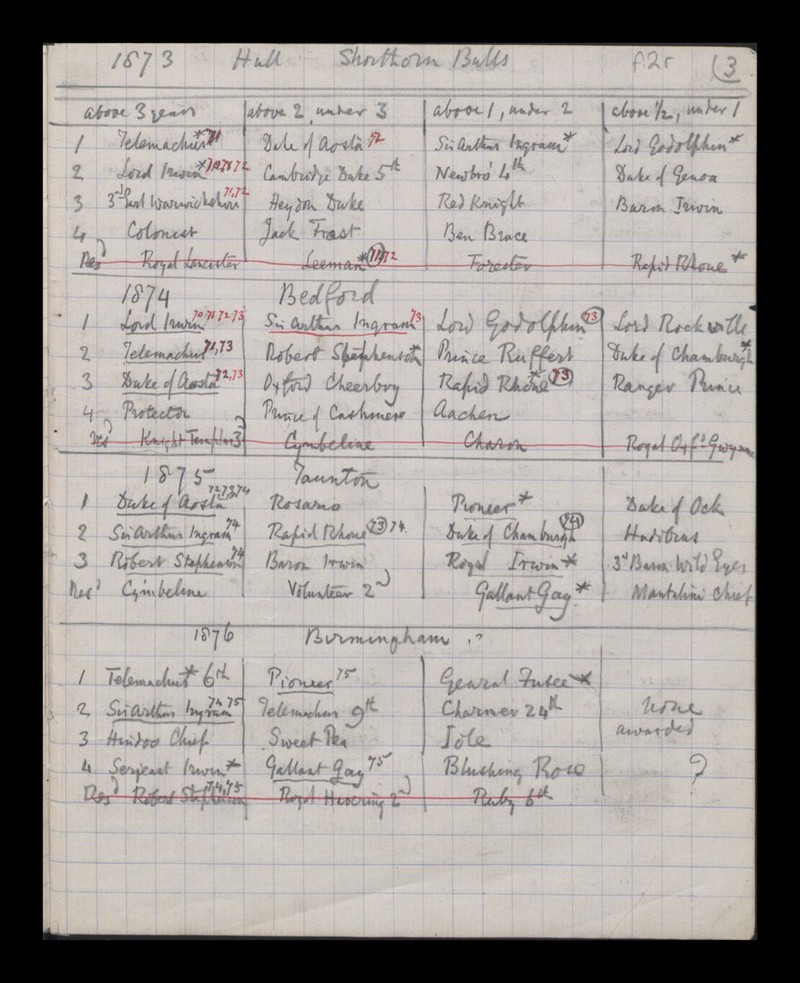 1873 Hull Shorthorn Bulls f.25 (3
above 3 years above 2, under 3 above 1, under 2 above 1/2, under 1
1 Telemachus* 71 Duke of Aosta 72 Sir Arthur Ingram* Lord Godolphin*
2 Lord Irwin* 70,71,72 Cambridge Duke 5th Newbro' 4th Duke of Genoa
3 3rd Earl Warwickshire 71,72 Heydon Duke Red Knight Baron Irwin
4 Colonist Jack Frost Ben Brace
Resd Royal Lancaster Leeman* 71 72 Forester Rapid Rhone*
1874 Bedford
1 Lord Irwin 70,71,72,73 Sir Arthur Ingram 73 Lord Godolphin 73 Lord Rockville
2 Telemachus 71,73 Robert Stephenson Prince Ruffert Duke of Chamburgh*
3 Duke of Aosta 72,73 Oxford Cheerboy Rapid Rhone* 73 Ranger Prince
4 Protector Prince of Cashmere Aachen
Resd Knight Templar 3d Cymbeline Charon Royal Oxfd Gwynne
1875 Taunton
1 Duke of Aosta 72,73,74 Rosario Pioneer* Duke of Ock
2 Sir Arthur Ingram 74 Rapid Rhone 73 74 Duke of Chamburgh 74 Hudibras
3 Robert Stephenson 74 Baron Irwin Royal Irwin* 3d Baron Wild Eyes
Resd Cymbeline Volunteer 2d Gallant Gay* Mantalini Chief
1876 Birmingham
1 Telemachus* 6th Pioneer 75 General Fusee*
2 Sir Arthur Ingram 74 75 Telemachus 9th Charmer 24th None
3 Hindoo Chief Sweet Pea Iole awarded
4 Serjeant Irwin* Gallant Gay 75 Blushing Rose ?
Resd Robert Stephenson 74,75 Royal Havering 2d Ruby 6th